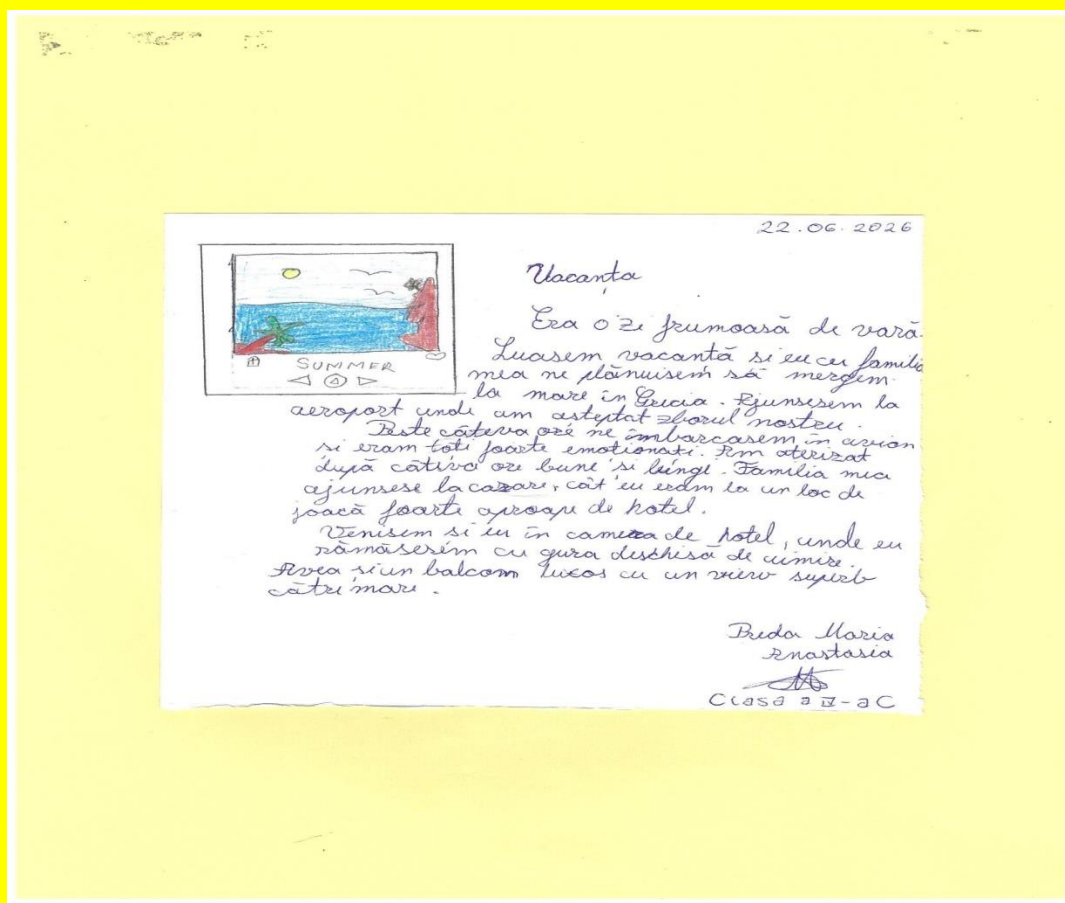 22.06.2026
Vacanța
Era o zi frumoasă de vară.
Luasem vacantă si eu cu familia
mea ne plănuisem să mergem
la mare în Grecia. Ajunsesem la
aeroport unde am asteptat zborul nostru.
Peste câteva ore ne îmbarcasem în avion
si eram toti foarte emotionati. Am aterizat
după câtiva ore bune si lungi. Familia mea
ajunsese la cazare, cât eu eram la un loc de
joacă foarte aproape de hotel.
Venisem si eu în camera de hotel, unde eu
rămăsesem cu gura deschisă de uimire.
Avea si un balcom luxos cu un view superb
către mare.
SUMMER
Preda Maria
Anastasia
Clasa a IV-a C